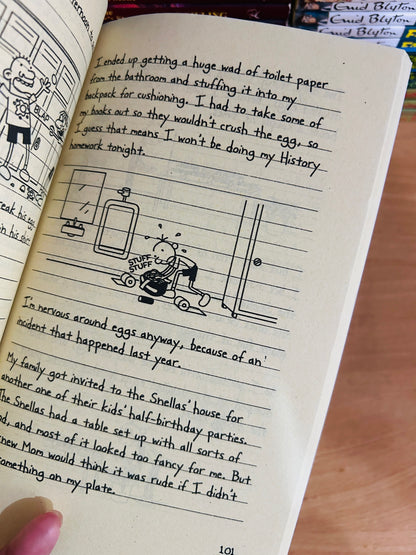 Enid Blyton
Enid Blyton
Enid Blyton
BLAP
I ended up getting a huge wad of toilet paper
from the bathroom and stuffing it into my
backpack for cushioning. I had to take some of
my books out so they wouldn't crush the egg, so
I guess that means I won't be doing my History
homework tonight.
STUFF
STUFF
I'm nervous around eggs anyway, because of an
incident that happened last year.
My family got invited to the Snellas' house for
another one of their kids' half-birthday parties.
The Snellas had a table set up with all sorts of
and most of it looked too fancy for me. But
Mom would think it was rude if I didn't
something on my plate.
101